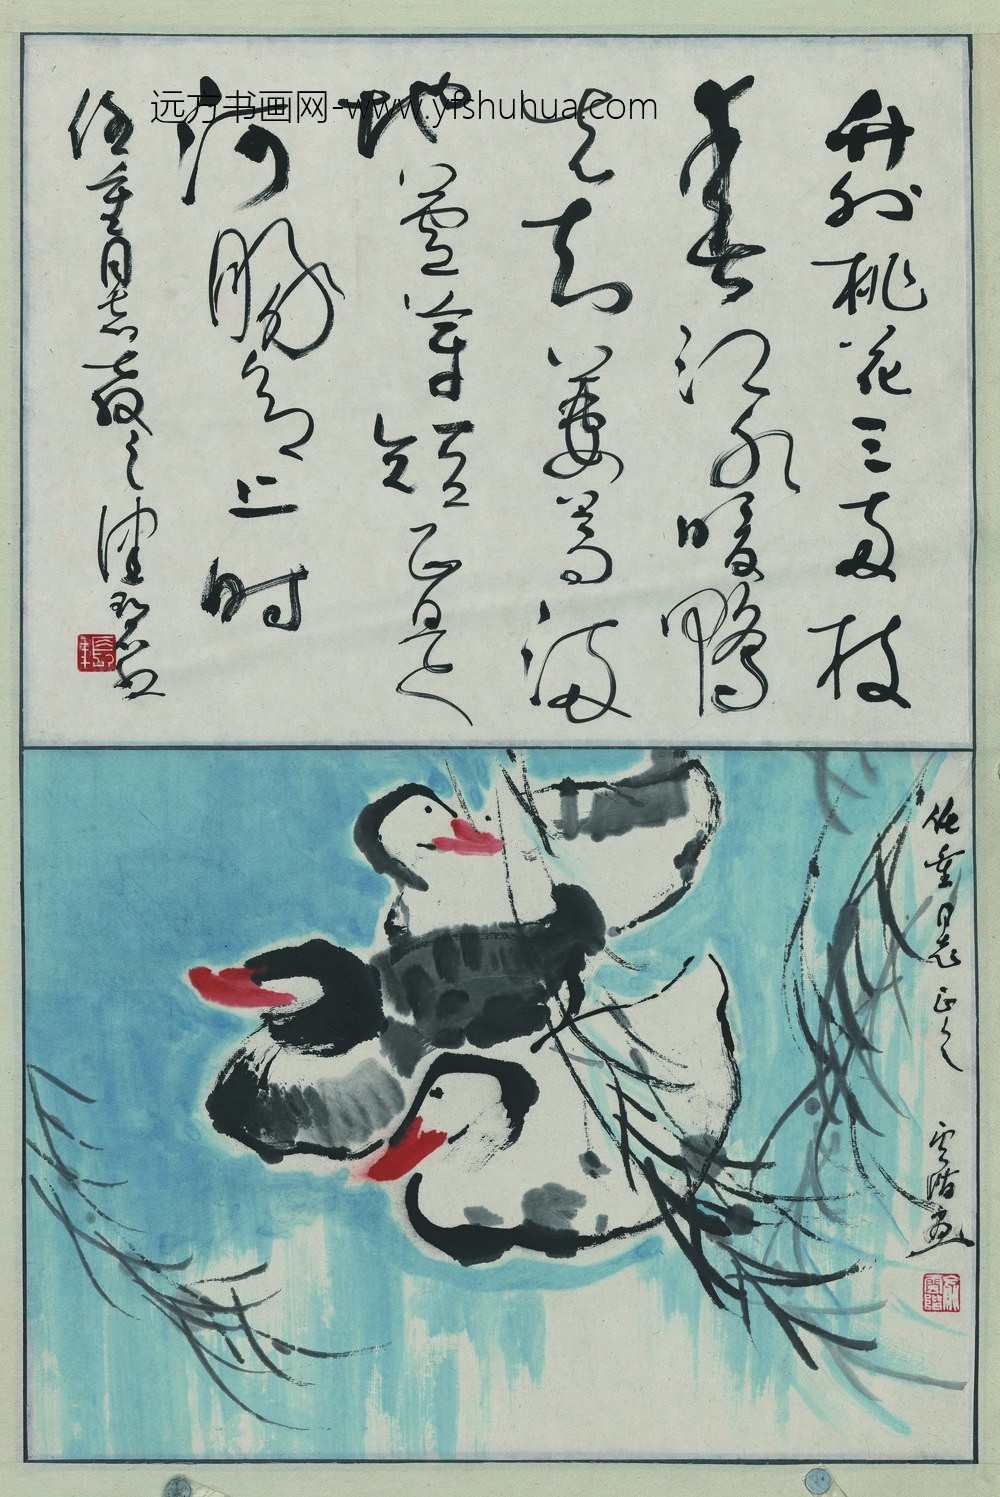 远方书画网-www.yfshuhua.com
竹外桃花三两枝
春江水暖鸭
先知蒌蒿满
地蘆芽短正是
河豚欲上时
任重同志教之
任重同志正之
雲階画